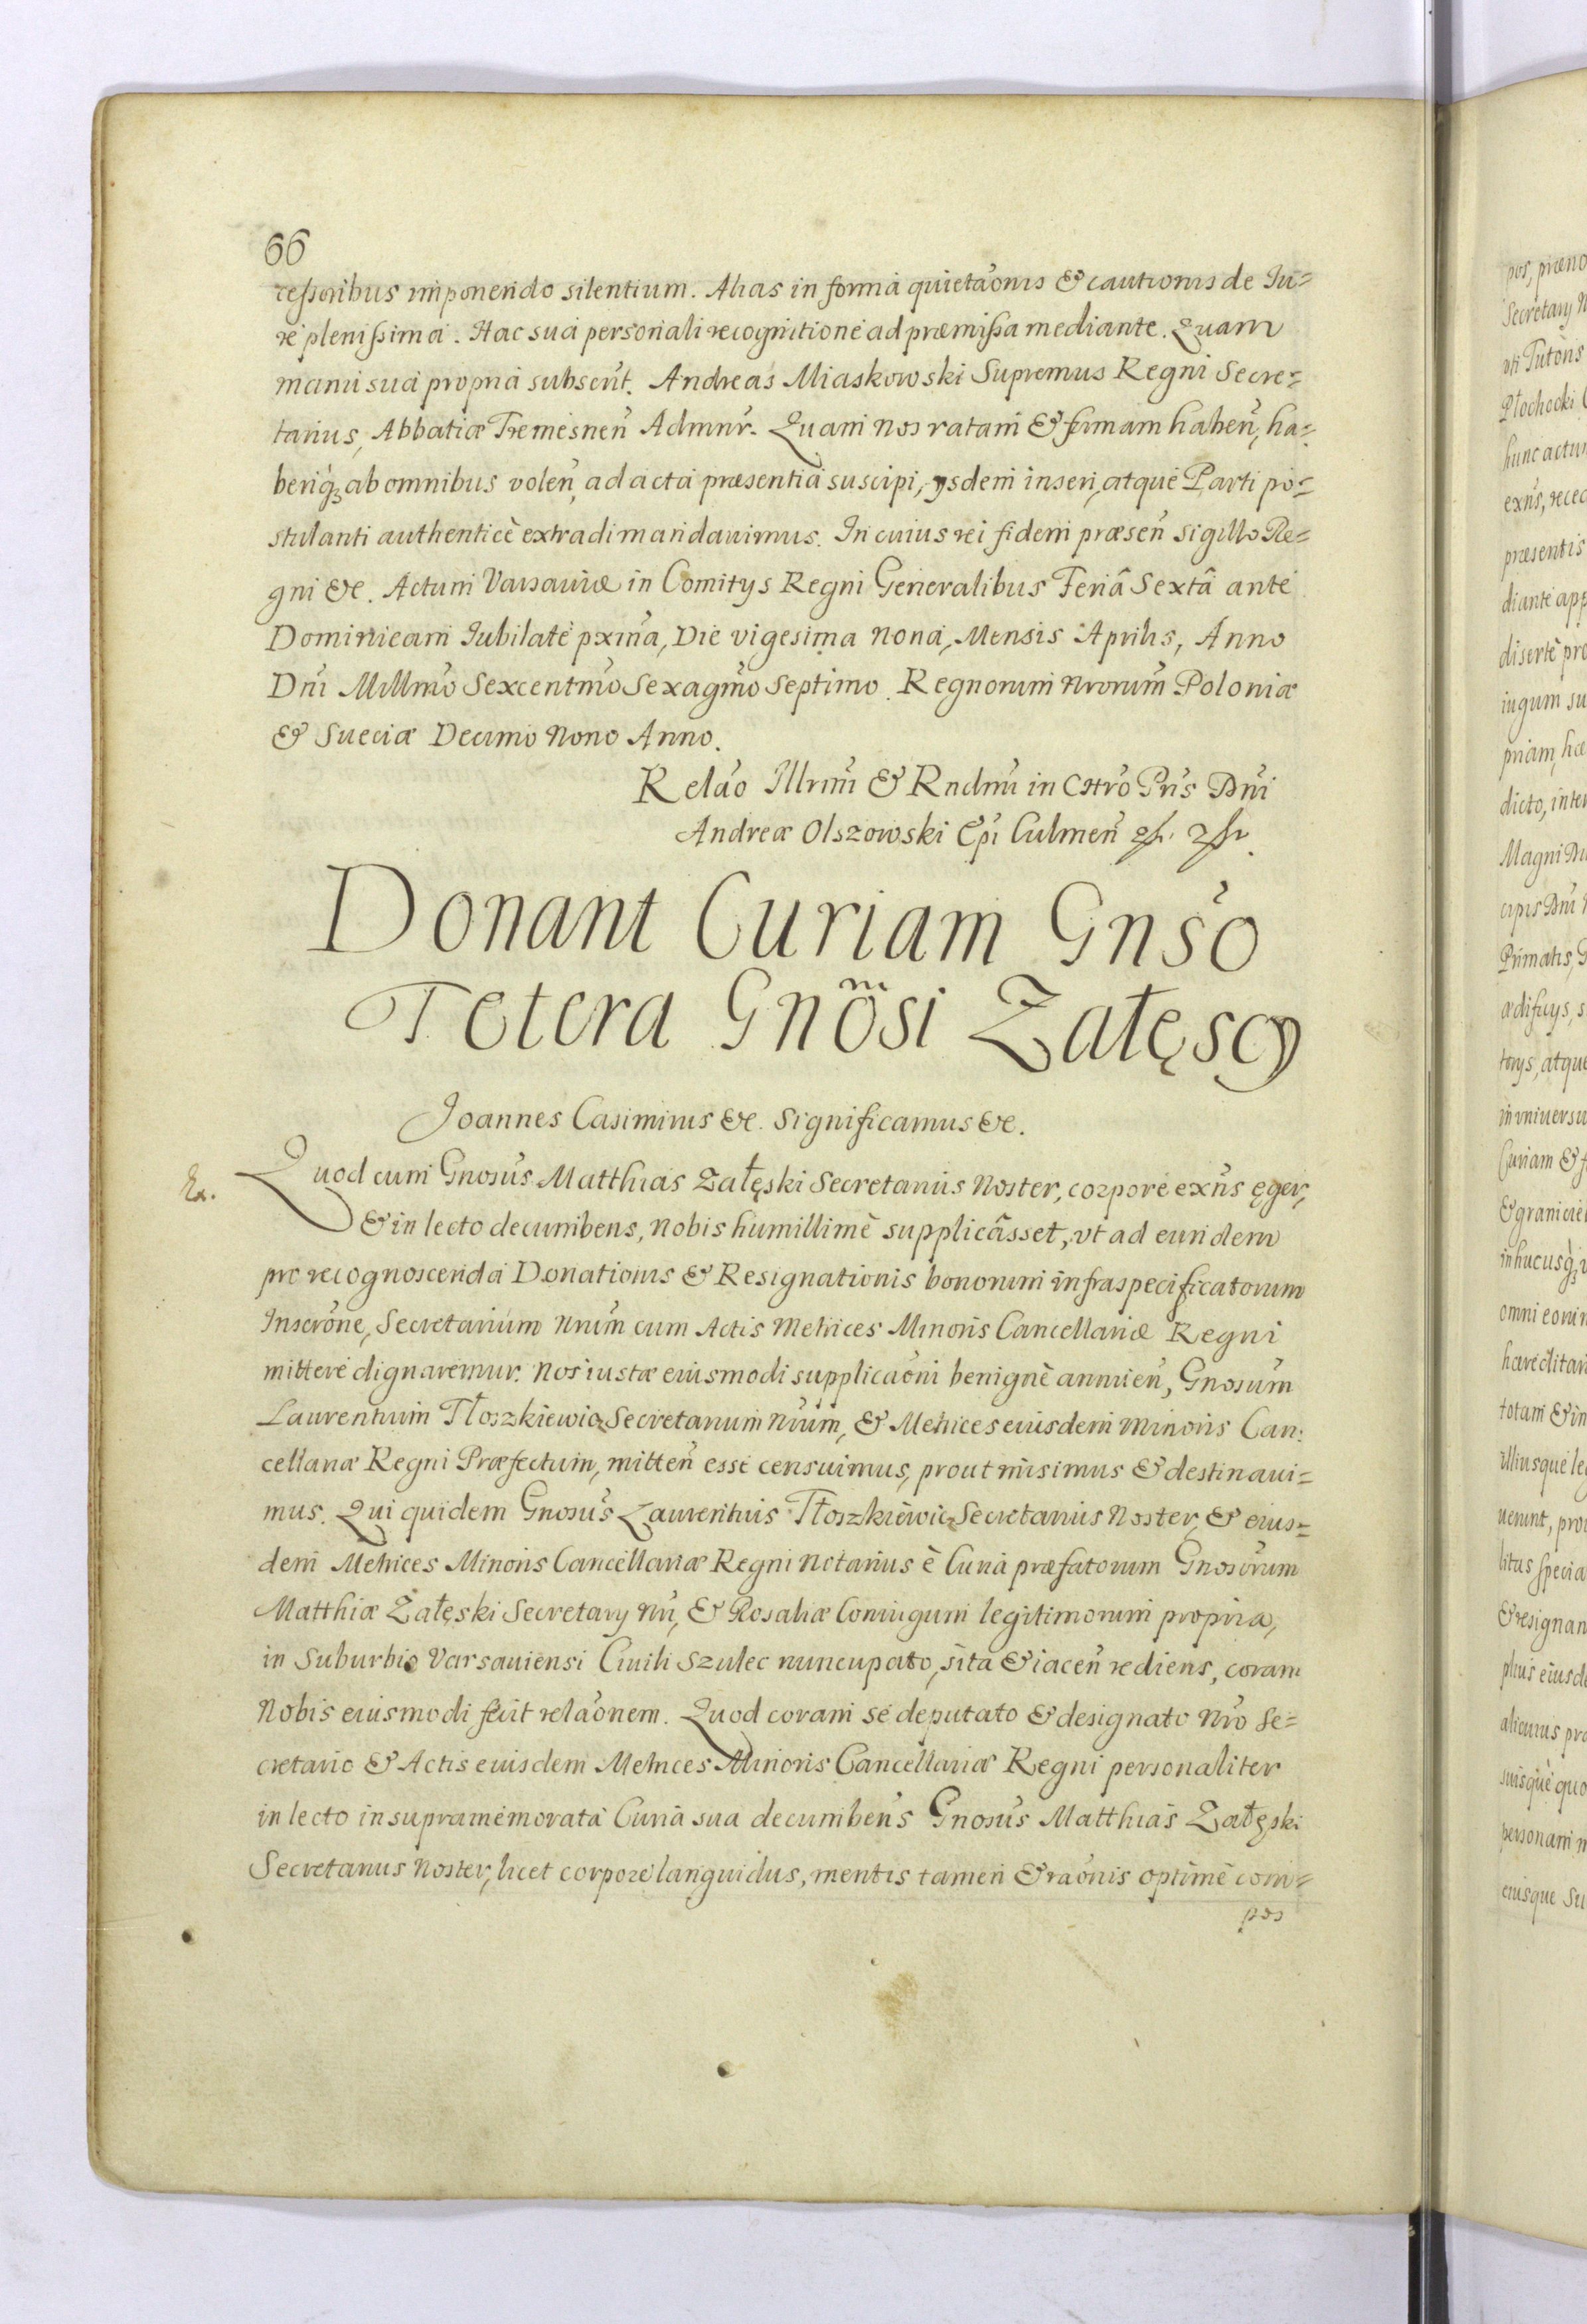 66
cessoribus imponendo silentium. Alias in forma quietãonis & cautionis de Iu=
re plenissima. Hac sua personali recognitione ad præmissa mediante. Quam
manu sua propria subscrt̃. Andreas Miaskowski Supremus Regni Secre=
tarius, Abbatiæ Tremesneñ Admnr̃. Quam nos ratam & firmam habeñ, ha=
beriq₃ ab omnibus voleñ, ad acta præsentia suscipi, ysdem inseri, atque Parti po=
stulanti authenticè extradi mandauimus. In cuius rei fidem præseñ sigillo Re=
gni &c. Actum Varsauiæ in Comitys Regni Generalibus Feriâ Sextâ ante
Dominicam Iubilate pxim̃a, Die vigesima nona, Mensis Aprilis, Anno
Dni̇̃ Millm̃o Sexcentm̃o Sexagm̃o Septimo. Regnorum Nrorum̃ Poloniæ
& Sueciæ Decimo Nono Anno.
Relão Illrm̃i & Rndm̃i in Chrõ Pris̃ Dñi
Andreæ Olszowski Epĩ Culmeñ
Donant Curiam Gnsõ
Tetera Gnõsi Załęscy
Joannes Casimirus &c. Significamus &c.
Ex.
Quod cum Gnosus̃ Matthias Załęski Secretarius Noster, corpore exñs ęger,
& in lecto decumbens, nobis humillimè supplicâsset, vt ad eundem
pro recognoscenda Donationis & Resignationis bonorum infraspecificatorum
Inscrõne, Secretarium Nrum̃ cum Actis Metrices Minoris Cancellariæ Regni
mittere dignaremur. Nos iustæ eiusmodi supplicaõni benignè annueñ, Gnosum̃
Laurentium Tłoszkiewic₃ Secretarium Nrum̃, & Metrices eiusdem Minoris Can:
cellariæ Regni Præfectum, mitteñ esse censuimus, prout misimus & destinaui=
mus. Qui quidem Gnosus̃ Laurentius Tłoszkiewic₃ Secretarius Noster, & eius=
dem Metrices Minoris Cancellariæ Regni Notarius è Curia præfatorum Gnosõrum
Matthiæ Załęski Secretary Nri̇̃, & Rosaliæ Coniugum legitimorum propria,
in Suburbio Varsauiensi Ciuili Szulec nuncupato, sita & iaceñ rediens, coram
Nobis eiusmodi fecit relaõnem. Quod coram se deputato & designato Nrõ Se=
cretario & Actis eiusdem Metrices Minoris Cancellariæ Regni personaliter
in lecto in supramemorata Curia sua decumbens Gnosus̃ Matthias Załęski
Secretarius Noster, licet corpore languidus, mentis tamen & raõnis optimè com=
pos